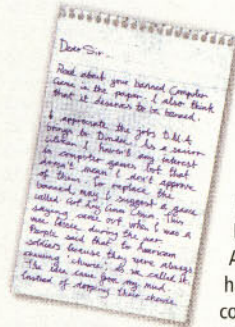 Dear Sir...
Read about your banned Computer
Game in the paper. I also think
that it deserves to be banned.
I appreciate the jobs D.M.A
brings to Dundee. As a senior
citizen, I haven't any interest
in computer games but that
doesn't mean I don't approve
of them. To replace the
banned, may I suggest a game
called Get Any Gum Chum. This
saying came out when I was a
wee lassie during the war.
People said that to American
soldiers because they were always
chewing 'chewie', as we called it.
The idea came from my mind.
Instead of dropping their chewie
A
h
co